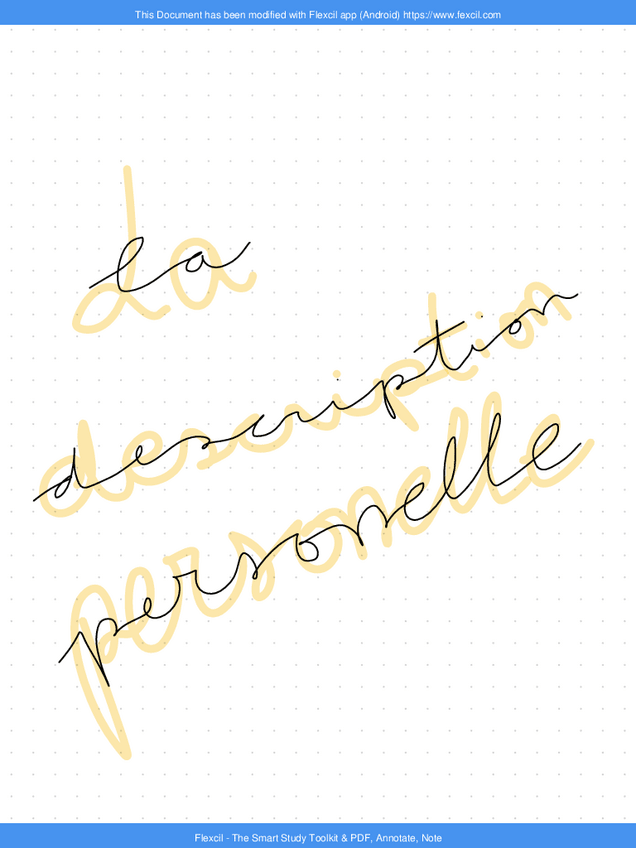 This Document has been modified with Flexcil app (Android) https://www.fexcil.com
la
description
personelle
Flexcil - The Smart Study Toolkit & PDF, Annotate, Note